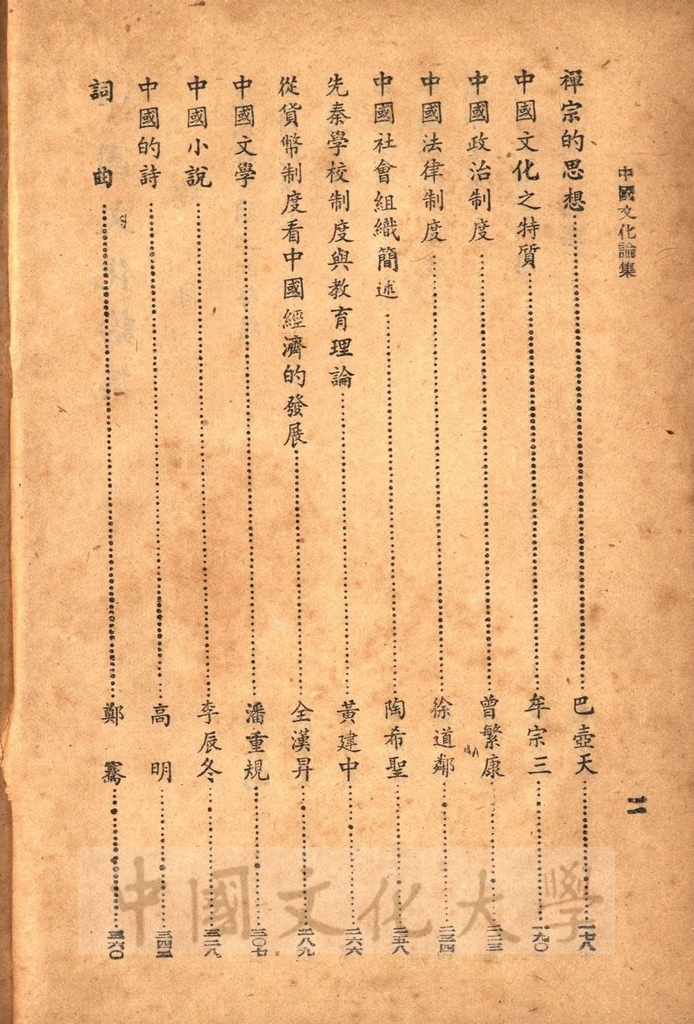 中國文化論集
二
禪宗的思想……巴壺天……一七八
中國文化之特質……牟宗三……一九〇
中國政治制度……曾繁康……二二三
中國法律制度……徐道鄰……二三四
中國社會組織簡述……陶希聖……二五八
先秦學校制度與教育理論……黃建中……二六六
從貨幣制度看中國經濟的發展……全漢昇……二八九
中國文學……潘重規……三〇七
中國小說……李辰冬……三二八
中國的詩……高明……三四三
詞曲……鄭騫……三六〇
中國文化大學